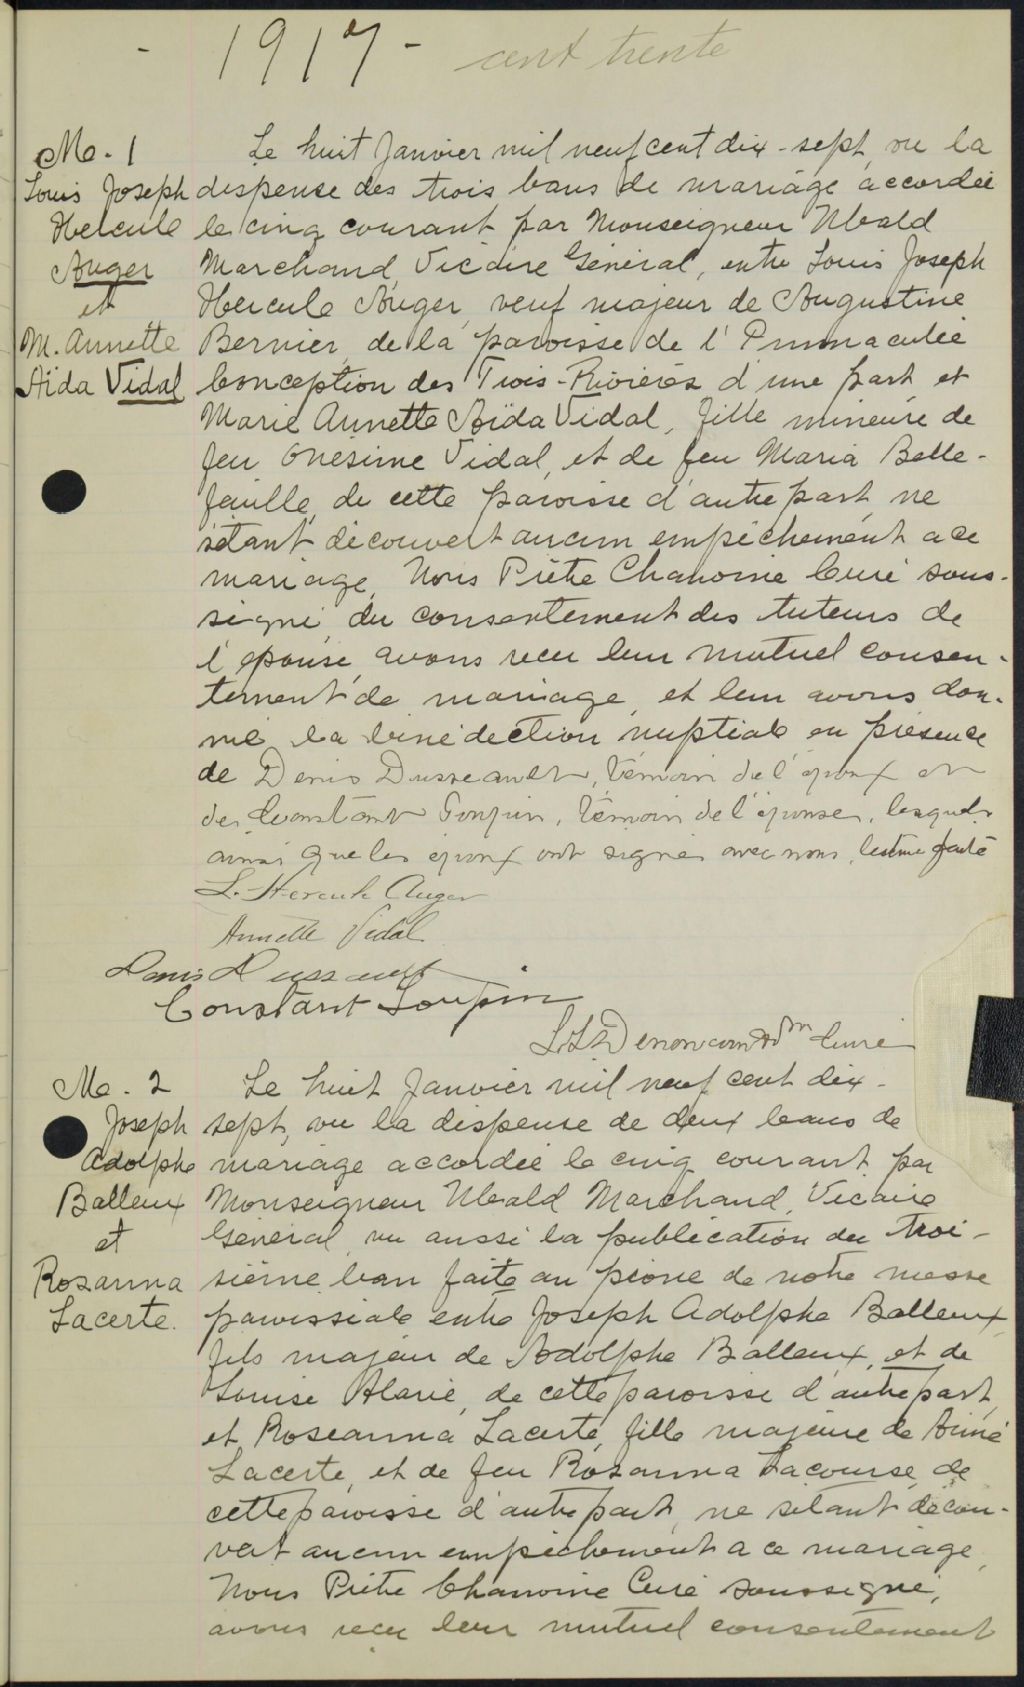 - 1917 - cent trente
M. 1
Louis Joseph
Hercule
Auger
et
M. Annette
Aïda Vidal
Le huit Janvier mil neuf cent dix-sept, vu la
dispense des trois bans de mariage accordée
le cinq courant par Monseigneur Ubald
Marchand, Vicaire Général, entre Louis Joseph
Hercule Auger, veuf majeur de Augustine
Bernier, de la paroisse de l'Immaculée
Conception des Trois-Rivières d'une part, et
Marie Annette Aïda Vidal, fille mineure de
feu Onésime Vidal, et de feu Maria Belle-
feuille, de cette paroisse d'autre part, ne
s'étant découvert aucun empêchement a ce
mariage, Nous Prêtre Chanoine Curé sous-
signé, du consentement des tuteurs de
l'épouse, avons recu leur mutuel consen-
tement de mariage, et leur avons don-
né la bénédiction nuptiale en présence
de Denis Dusseault, témoin de l'époux et
de Constant Goupin, témoin de l'épouse, lesquels
ainsi que les époux ont signés avec nous, lecture faite
L. Hercule Auger
Annette Vidal
Denis Dussault
Constant Goupin
Denoncourt Curé
M. 2
Joseph
Adolphe
Balleux
et
Rosanna
Lacerte.
Le huit Janvier mil neuf cent dix-
sept, vu la dispense de deux bans de
mariage accordée le cinq courant par
Monseigneur Ubald Marchand, Vicaire
Général, vu aussi la publication du troi-
sième ban faite au prone de notre messe
paroissiale entre Joseph Adolphe Balleux,
fils majeur de Adolphe Balleux, et de
Louise Alarie, de cette paroisse d'autre part,
et Roseanna Lacerte, fille majeure de Aimé
Lacerte, et de feu Rosanna Lacourse, de
cette paroisse d'autre part, ne s'étant décou-
vert aucun empêchement a ce mariage,
Nous Prêtre Chanoine Curé soussigné,
avons recu leur mutuel consentement